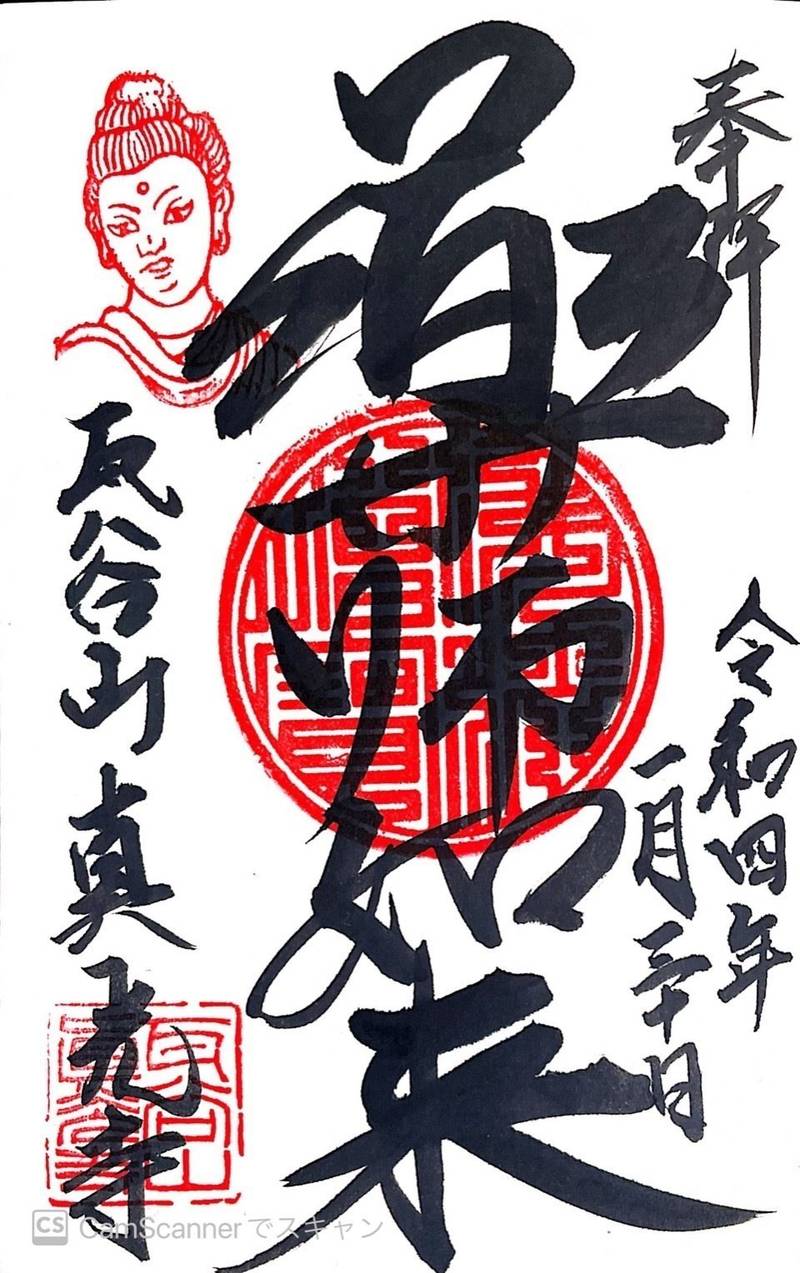 奉拝
令和四年
一月三十日
薬師如来
瓦谷山 真光寺
CS CamScannerでスキャン